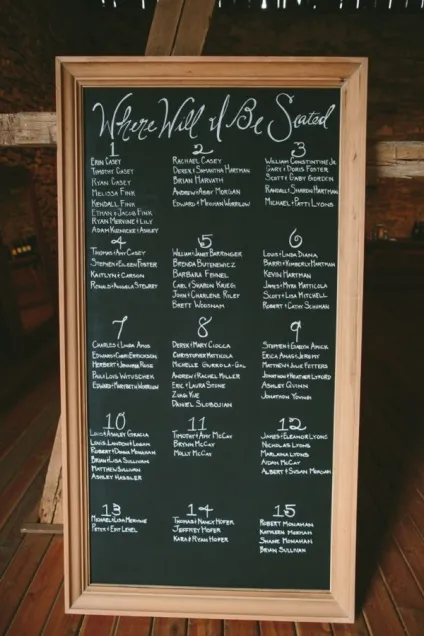 Where Will I Be Seated
1
Erin Casey
Timothy Casey
Ryan Casey
Melissa Fink
Kendall Fink
Ethan & Jacob Fink
Ryan Mervine & Lily
Adam Kuenicke & Ashley
2
Rachael Casey
Derek & Samantha Hartman
Brian Harvath
Andrew & Abby Morgan
Edward & Meghan Warklow
3
William Constintine Jr.
Gary & Doris Foster
Scott & Gaby Gordon
Randall & Sharon Hartman
Michael & Patti Lyons
4
Thomas & Amy Casey
Stephen & Eileen Foster
Kaitlyn & Carson
Ronald & Angela Stewrey
5
William & Janet Barringer
Brenda Butenewicz
Barbara Fennel
Carl & Sharon Krieg
John & Charlene Riley
Brett Woosnam
6
Louis & Linda Diana
Barri & Kimberly Hartman
Kevin Hartman
James & Myra Matticola
Scott & Lisa Mitchell
Robert & Cathy Schuman
7
Charles & Linda Amos
Edward & Chris Erickson
Herbert & Jennifer Ridge
Paul & Lois Wituschek
Edward & MaryBeth Warklow
8
Derek & Mary Ciocca
Christopher Matticola
Michelle Gurreola-Gal
Andrew & Rachel Miller
Eric & Laura Stone
Zihan Xue
Daniel Slobojian
9
Stephen & Gudon Anick
Erica Amas & Jeremy
Matthew & Julie Fetters
Jonathan & Heather Lyford
Ashley Quinn
Jonathon Younner
10
Louis & Ashley Gracia
Louis, Landon & Logan
Robert & Donna Monahan
Brian & Lisa Sullivan
Matthew Sullivan
Ashley Hassler
11
Timothy & Amy McCay
Brynn McCay
Molly McCay
12
James & Eleanor Lyons
Nicholas Lyons
Marlaina Lyons
Aidan McCay
Albert & Susan Morgan
13
Michael & Lisa Mervine
Peter & Emit Level
14
Thomas & Nancy Hofer
Jeffrey Hofer
Kara & Ryan Hofer
15
Robert Monahan
Kathleen Meehan
Shane Monahan
Brian Sullivan